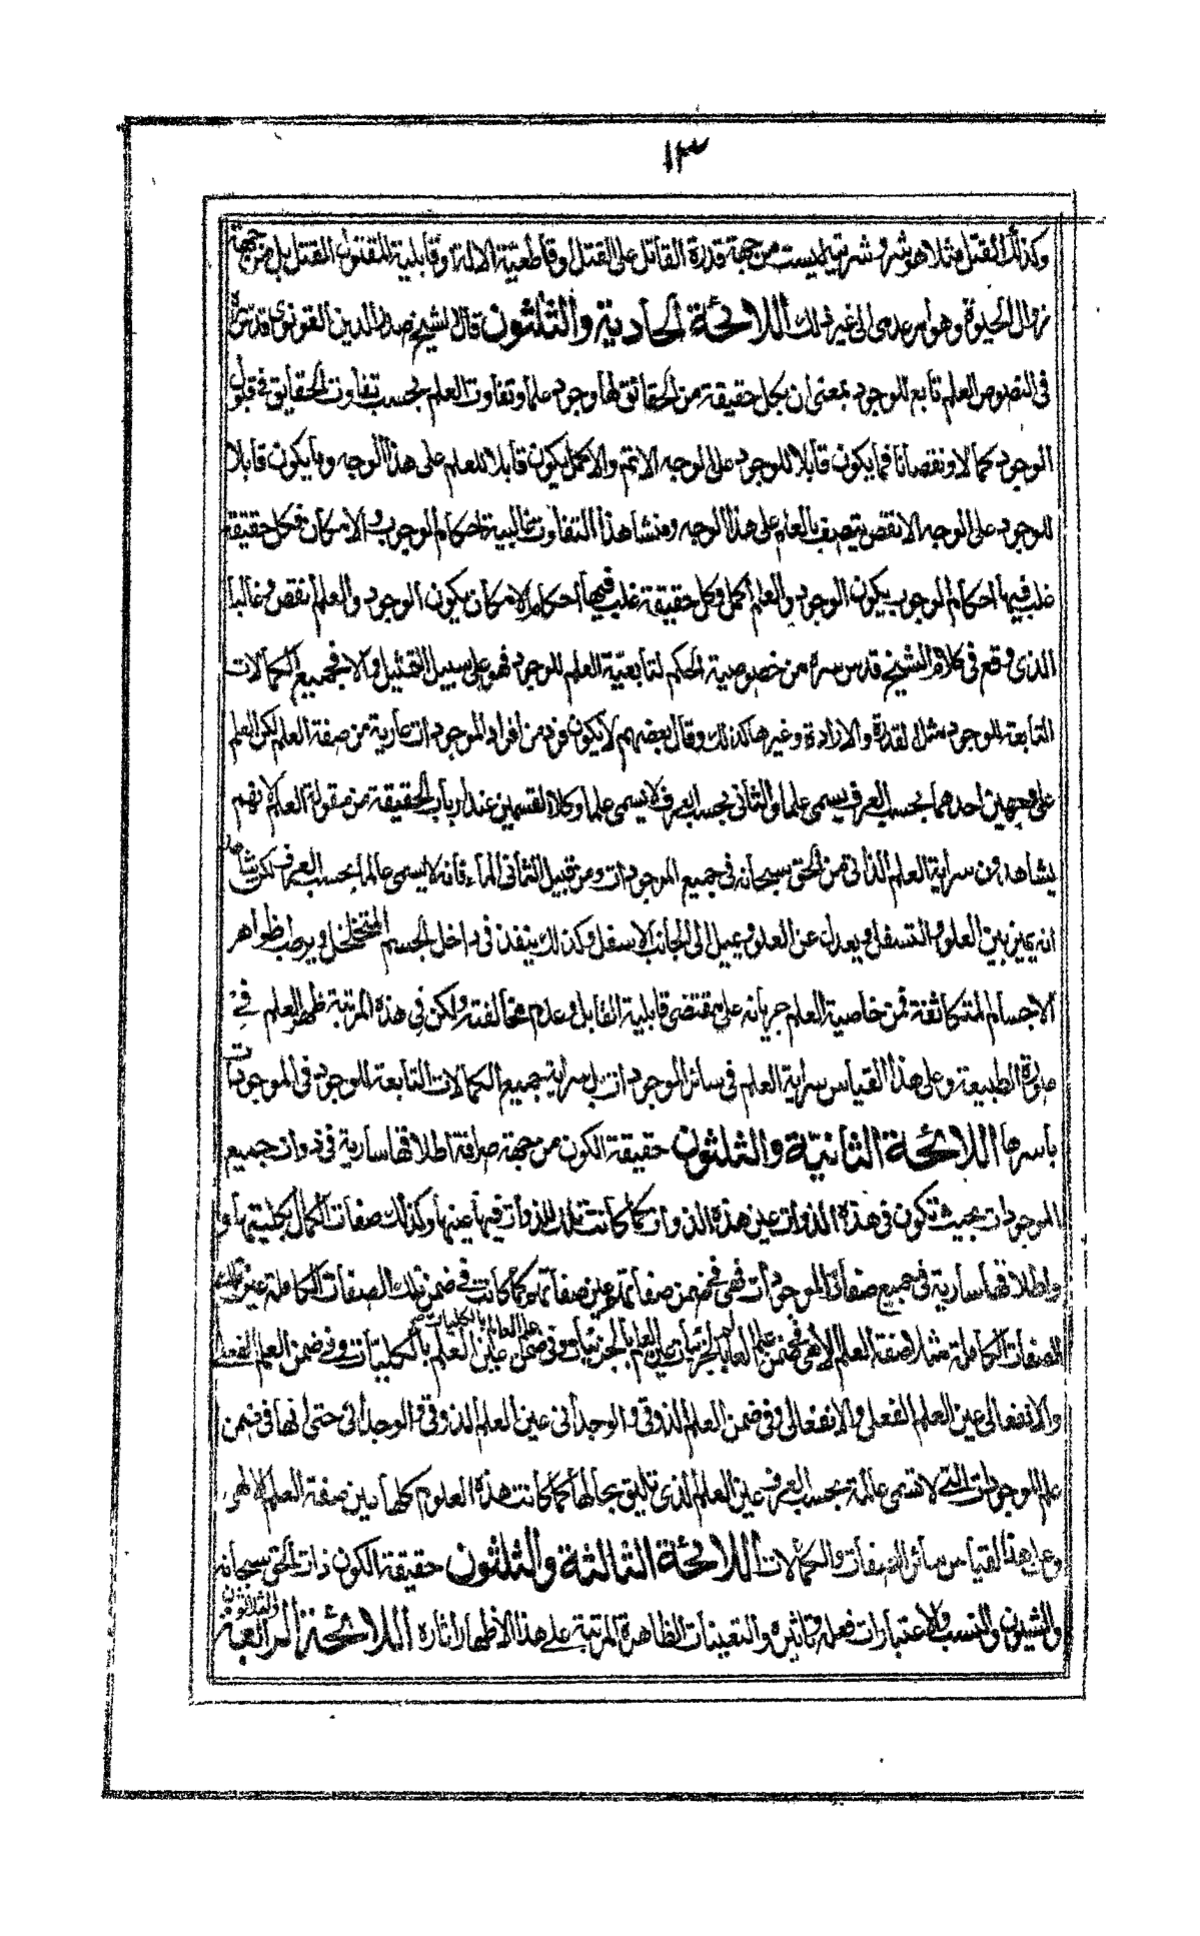 ١٣
وكذلك القتل مثلا هو شر وشريته ليست من جهة قدرة القاتل على القتل وقاطعيّة الالة وقابلية المقتول للقتل بل من جهة
زوال الحيوة وهو امر عدمى الى غير ذلك اللائحة الحادية والثلثون قال الشيخ صدر الدين القونوى قدس سره
فى النصوص العلم تابع للوجود بمعنى ان كل حقيقة من الحقائق لها وجود علم وتفاوت العلم بحسب تفاوت الحقايق فى قبول
الوجود كمالا ونقصانا فما يكون قابلا للوجود على الوجه الاتم والاكمل يكون قابلا للعلم على هذا الوجه وما يكون قابلا
للوجود على الوجه الانقص يتصف بالعلم على هذا الوجه ومنشا هذا التفاوت غالبية احكام الوجوب والامكان فكل حقيقة
غلب فيها احكام الوجوب يكون الوجود والعلم اكمل وكل حقيقة غلب فيها احكام الامكان يكون الوجود والعلم انقص وغالبا
الذى وقع فى كلام الشيخ قدس سره من خصوصية الحكم لتابعيّة العلم للوجود فهو على سبيل التمثيل والا فجميع الكمالات
التابعة للوجود مثل القدرة والارادة وغيرها كذلك وقال بعضهم لا يكون فرد من افراد الموجودات عارية من صفة العلم لكن العلم
على وجهين احدهما بحسب العرف يسمى علما والثانى بحسب العرف لا يسمى علما وكلا القسمين عند ارباب الحقيقة من مقولة العلم لانهم
يشاهدون سراية العلم الذاتى من الحق سبحانه فى جميع الموجودات ومن قبيل الثانى الماء فانه لا يسمى عالما بحسب العرف لكن
انه يميز بين العلو والتسفل ويعدل عن العلو ويميل الى الجانب الاسفل وكذلك ينفذ فى داخل الجسم المتخلخل ويرطب ظواهر
الاجسام المتكاثفة فمن خاصية العلم جريانه على مقتضى قابلية القابل وعدم مخالفته ولكن فى هذه المرتبة ظهر العلم فى
صورة الطبيعة وعلى هذا القياس سراية العلم فى سائر الموجودات بل سراية جميع الكمالات التابعة للوجود فى الموجودات
باسرها اللائحة الثانيّة والثلثون حقيقة الكون من جهة صرافة اطلاقها سارية فى ذوات جميع
الموجودات بحيث تكون فى هذه الذوات عين هذه الذوات كما كانت تلك الذوات فيها عينها وكذلك صفات الكمال بكليتها و
واطلاقها سارية فى جميع صفات الموجودات فهى فى ضمن صفاتهم عين صفاتهم كما كانت فى ضمن تلك الصفات الكاملة عين تلك
الصفات الكاملة مثلا صفة العلم الالهى فى ضمن علم العالم بالجزئيات عين العلم بالجزئيات وفى ضمن علم العالم بالكليات عين العلم بالكليّات وفى ضمن العلم الفعلى
والانفعالى عين العلم الفعلى والانفعالى وفى ضمن العلم الذوقى والوجدانى عين العلم الذوقى والوجدانى حتى انها فى ضمن
علم الموجودات التى لا تسمى عالمة بحسب العرف عين العلم الذى تاليق بحالها كما كانت هذه العلوم كلها عين صفة العلم الالهى
وعلى هذا القياس سائر الصفات والكمالات اللائحة الثالثة والثلثون حقيقة الكون ذات الحق سبحانه
والشيون والنسب والاعتبارات فعله وتاثيره والتعينات الظاهرة المرتبة على هذا الاظهار اثاره اللائحة الرابعة والثلثون